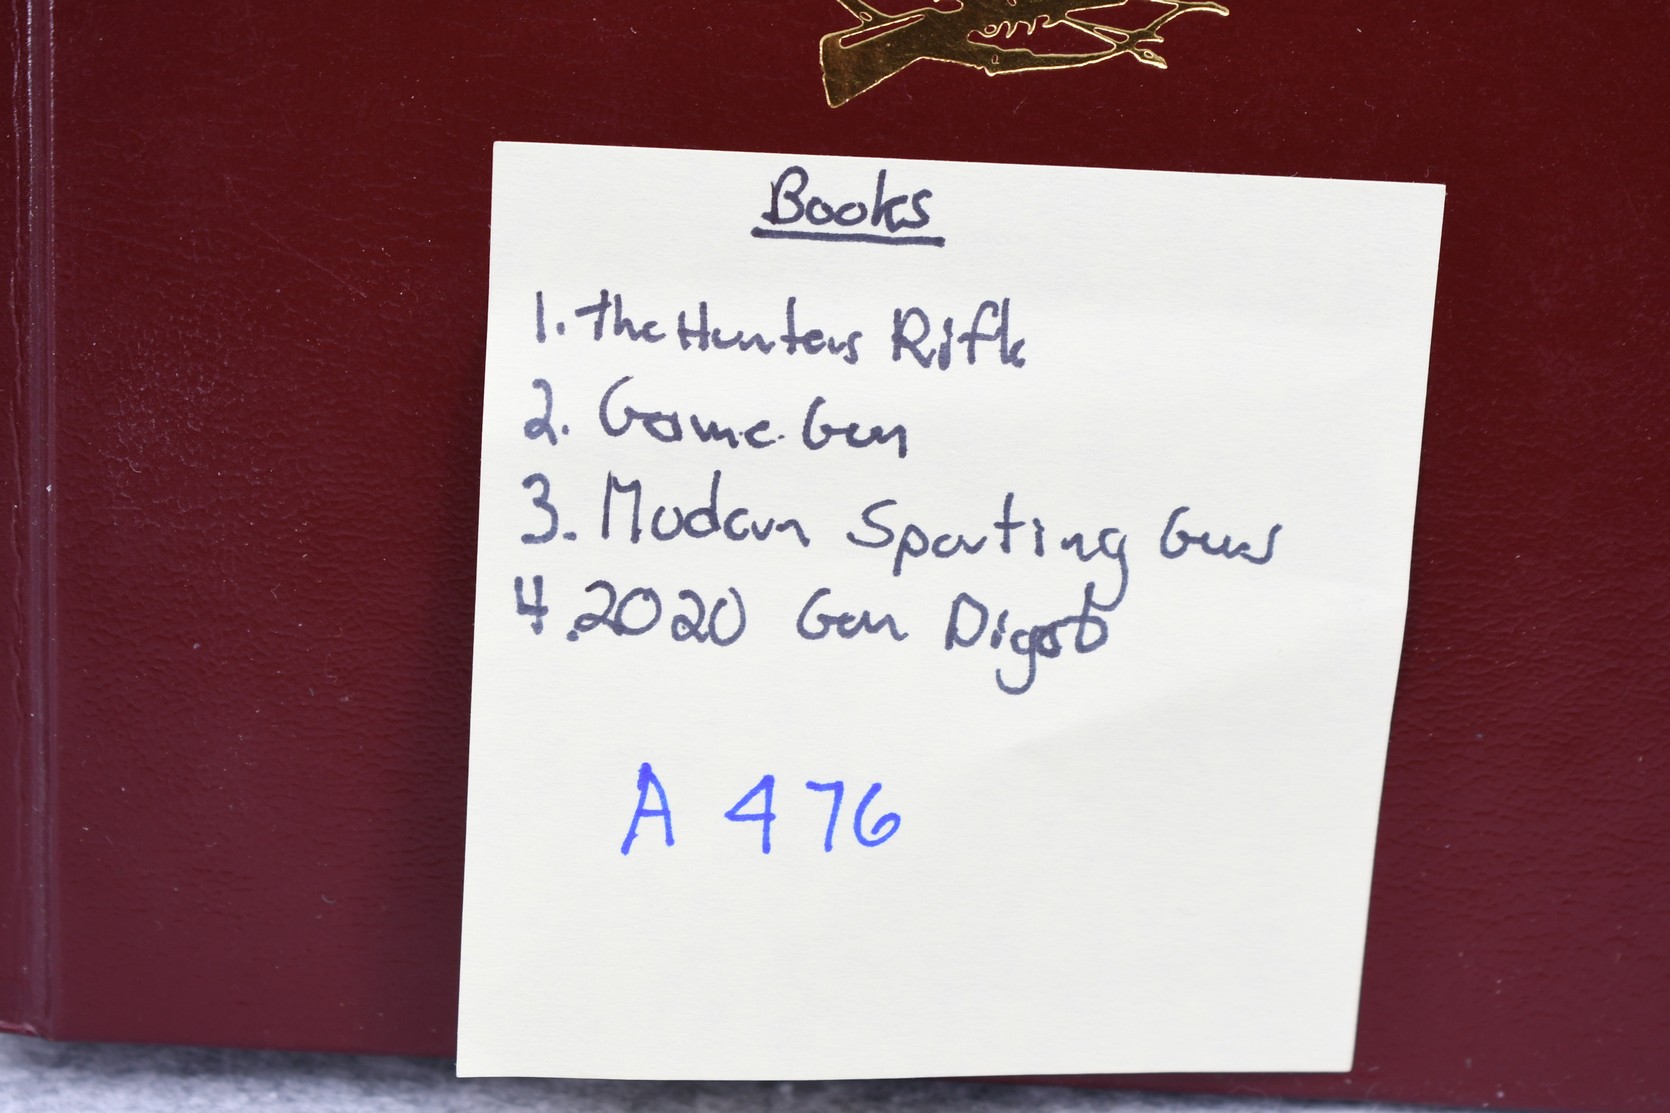 Books
1. The Hunters Rifle
2. Game Gun
3. Modern Sporting Guns
4. 2020 Gun Digest
A 476